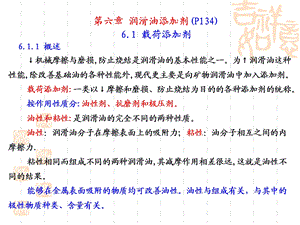 第六章 润滑油添加剂(P134)
6.1 载荷添加剂
6.1.1 概述
↓机械摩擦与磨损,防止烧结是润滑油的基本性能之一。为↑润滑油这种
性能,除改善基础油的各种性能外,现代更主要是向矿物润滑油中加入添加剂。
载荷添加剂:一类以↓摩擦和磨损、防止烧结为目的的各种添加剂的统称。
按作用性质分:油性剂、抗磨剂和极压剂。
油性和粘性:是润滑油的完全不同的两种性质。
油性:润滑油分子在摩擦表面上的吸附力;粘性:油分子相互之间的内
摩擦力.
粘性相同而组成不同的两种润滑油,其减摩作用相差很远,这就是油性不
同的结果。
能够在金属表面吸附的物质均可改善油性。油性与组成有关、与其中的
极性物质种类、含量有关。